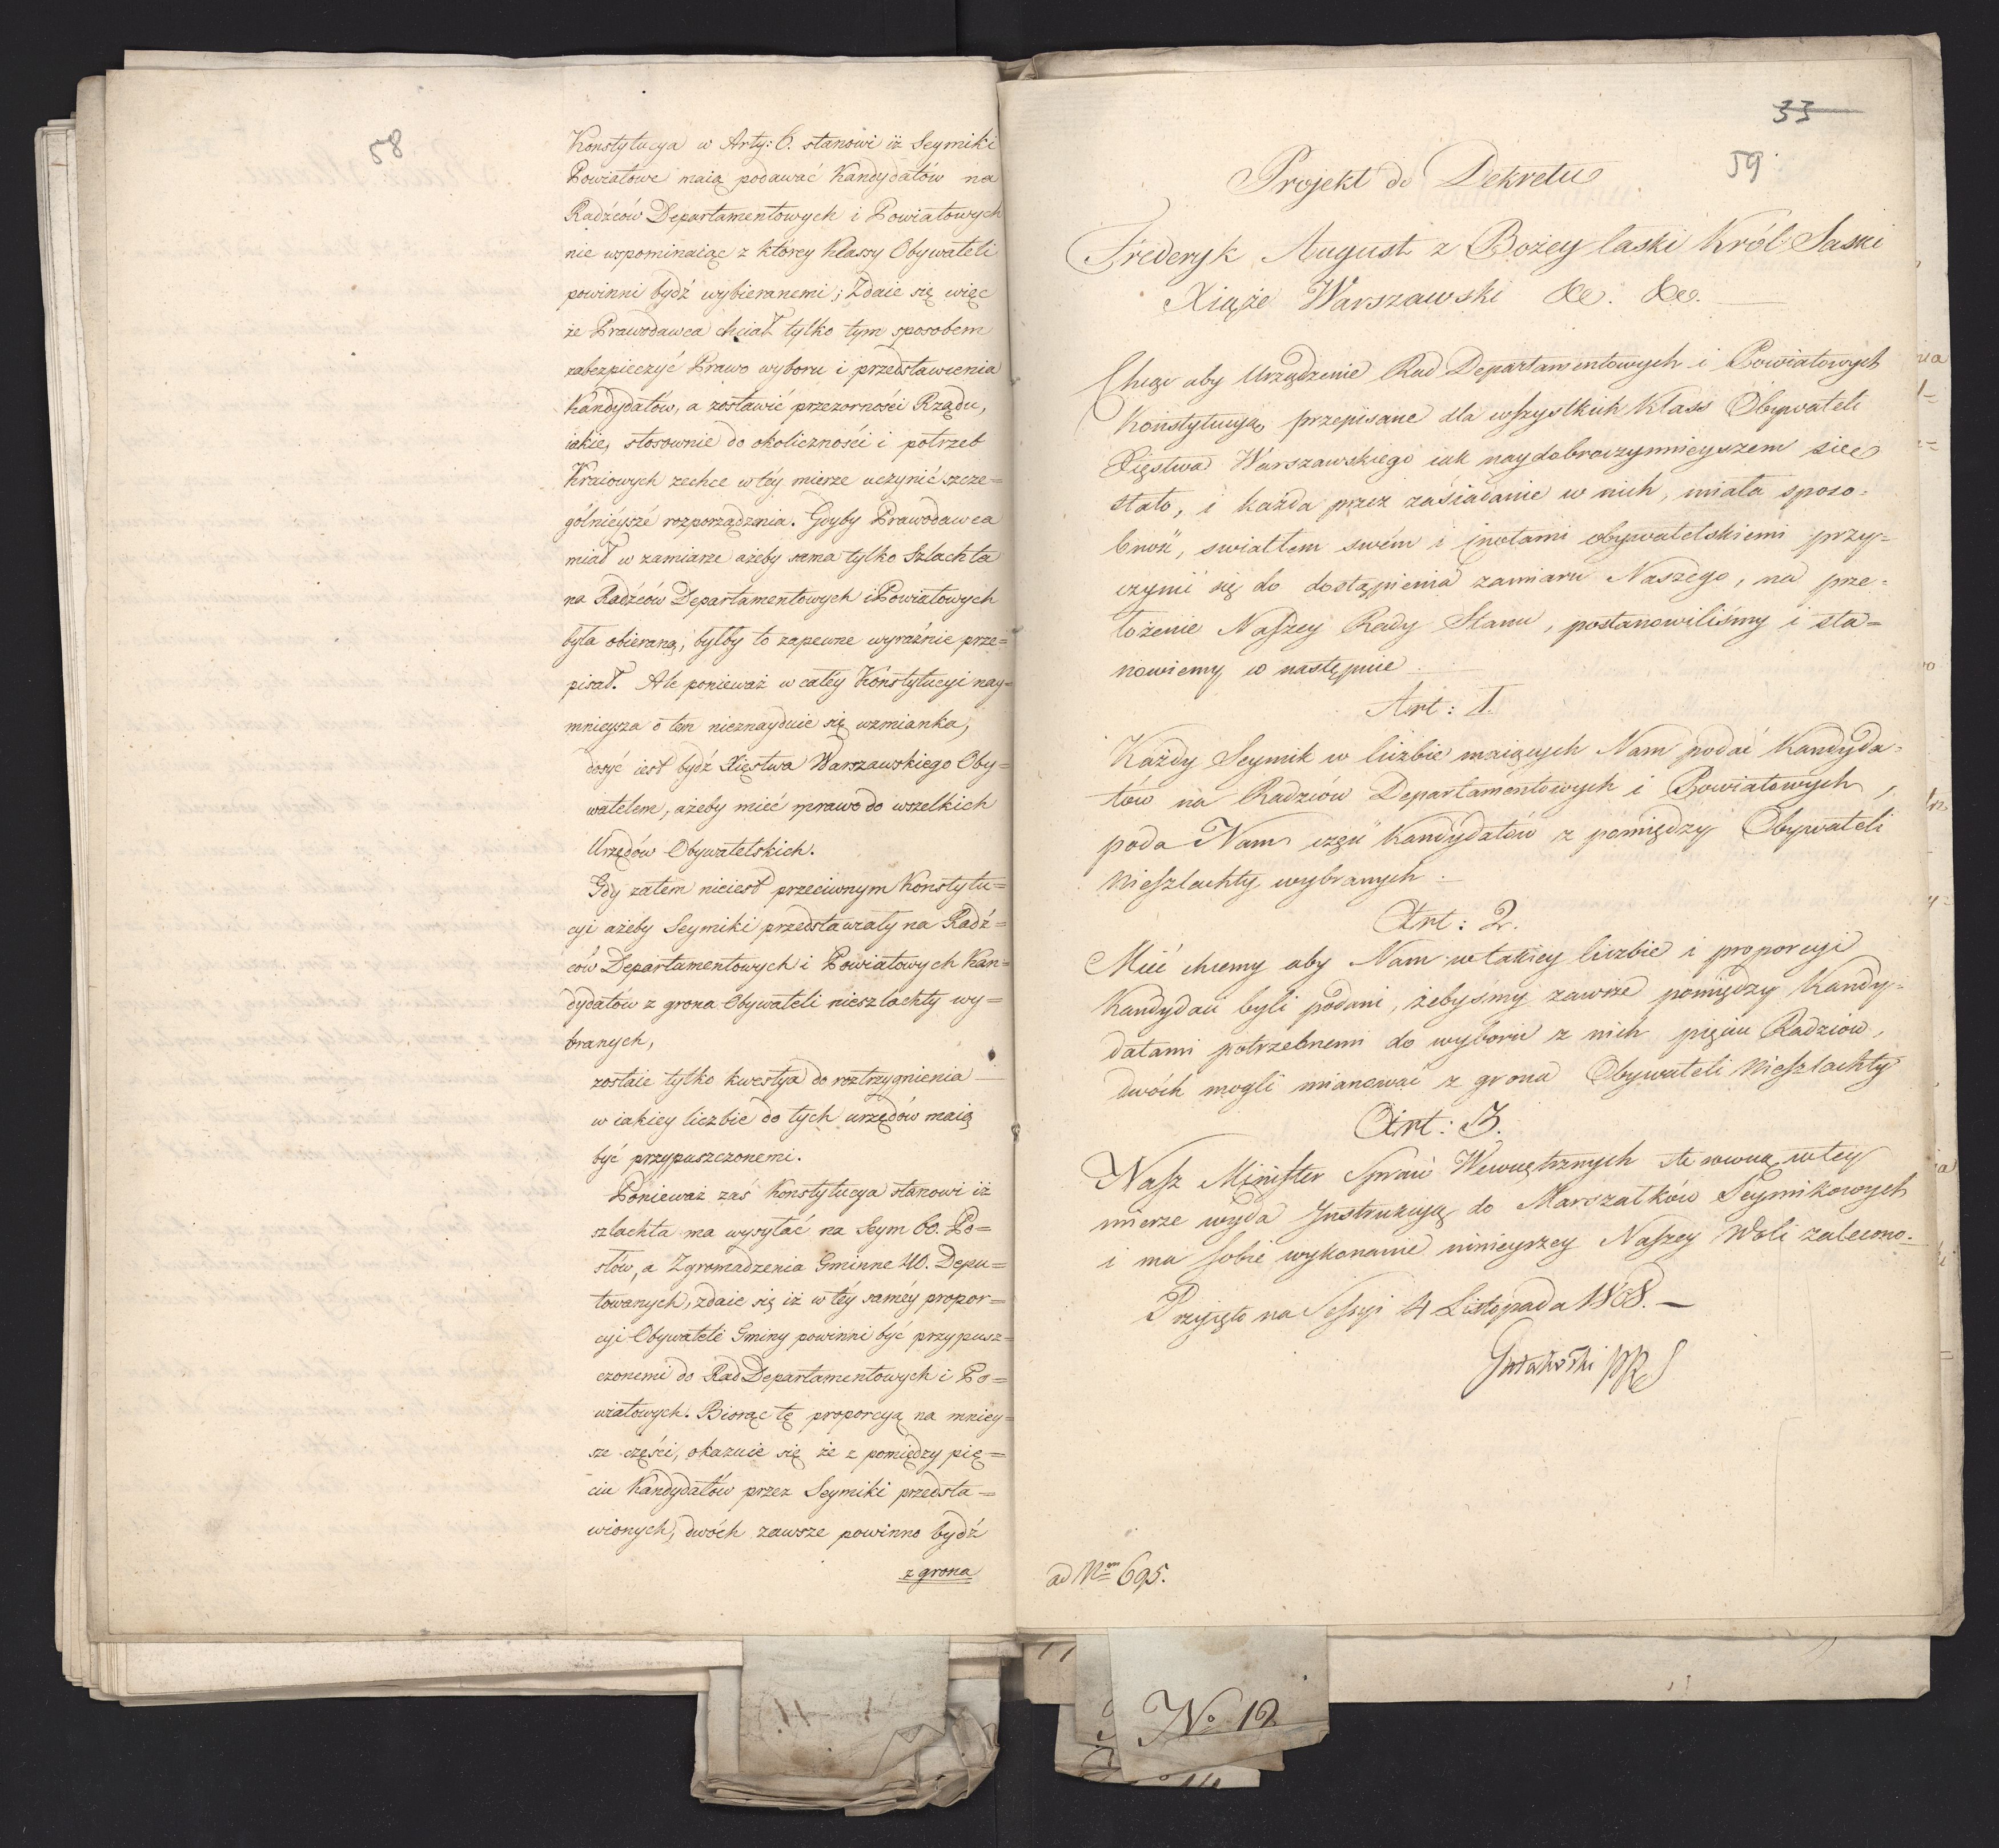 58
Konstytucya w Arty: 6. stanowi iż Seymiki
Powiatowe maią podawać Kandydatów na
Radźców Departamentowych i Powiatowych
nie wspominaiąc z którey Klassy Obywateli
powinni bydź wybieranemi; Zdaie się więc
że Prawodawca chciał tylko tym sposobem
zabezpieczyć Prawo wyboru i przedstawienia
Kandydatów, a zostawić przezorności Rządu,
iakie, stosownie do okoliczności i potrzeb
Kraiowych zechce w téy mierze uczynić szcze=
gólnieysze rozporządzenia. Gdyby Prawodawca
miał w zamiarze ażeby sama tylko Szlachta
na Radźców Departamentowych i Powiatowych
była obieraną, byłby to zapewne wyraźnie prze=
pisał. Ale ponieważ w całéy Konstytucyi nay=
mnieysza o tem nieznayduie się wzmianka,
dosyć iest bydź Xięstwa Warszawskiego Oby=
watelem, ażeby mieć prawo do wszelkich
Urzędów Obywatelskich.
Gdy zatem nieiest przeciwnym Konstytu=
cyi ażeby Seymiki przedstawiały na Radź=
ców Departamentowych i Powiatowych Kan=
dydatów z grona Obywateli nieszlachty wy=
branych,
zostaie tylko kwestya do roztrzygnienia
w iakiey liczbie do tych urzędów maią
być przypuszczonemi.
Ponieważ zaś Konstytucya stanowi iż
szlachta ma wysyłać na Seym 60. Po=
słów, a Zgromadzenia Gminne 40. Depu=
towanych, zdaie się iż w téy saméy propor=
cyi Obywatele Gminy powinni być przypusz=
czonemi do Rad Departamentowych i Po=
wiatowych. Biorąc tę proporcyą na mniey=
sze części, okazuie się że z pomiędzy pię=
ciu Kandydatów przez Seymiki przedsta=
wionych, dwóch zawsze powinno bydź
z grona
33
59
Projekt do Dekretu
Frederyk August z Bożey łaski Król Saski
Xiąże Warszawski &c. &c.
Chcąc aby Urządzenie Rad Departamentowych i Powiatowych
Konstytucyą przepisane dla wszystkich Klass Obywateli
Xięstwa Warszawskiego iak naydobroczynnieyszem się
stało, i każda przez zasiadanie w nich, miała sposo=
bność, swiatłem swém i cnotami obywatelskiemi przy=
czynić się do dostąpienia zamiaru Naszego, na prze=
łożenie Naszey Rady Stanu, postanowiliśmy i sta=
nowiemy co następuie
Art: 1.
Każdy Seymik w liczbie maiących Nam podać Kandyda=
tów na Radzców Departamentowych i Powiatowych,
poda Nam część Kandydatów z pomiędzy Obywateli
Nieszlachty wybranych.
Art: 2.
Mieć chcemy aby Nam w takiey liczbie i proporcyi
Kandydaci byli podani, żebyśmy zawsze pomiędzy Kandy=
datami potrzebnemi do wyboru z nich pięciu Radzców,
dwóch mogli mianować z grona Obywateli Nieszlachty
Art: 3.
Nasz Minister Spraw Wewnętrznych stosowną w tey
mierze wyda Instrukcyą do Marszałków Seymikowych
i ma sobie wykonanie ninieyszey Naszey Woli zalecono.
Przyięto na Sessyi 4 Listopada 1808.
Gutakowski PRS
ad Nrm 695.
No 12